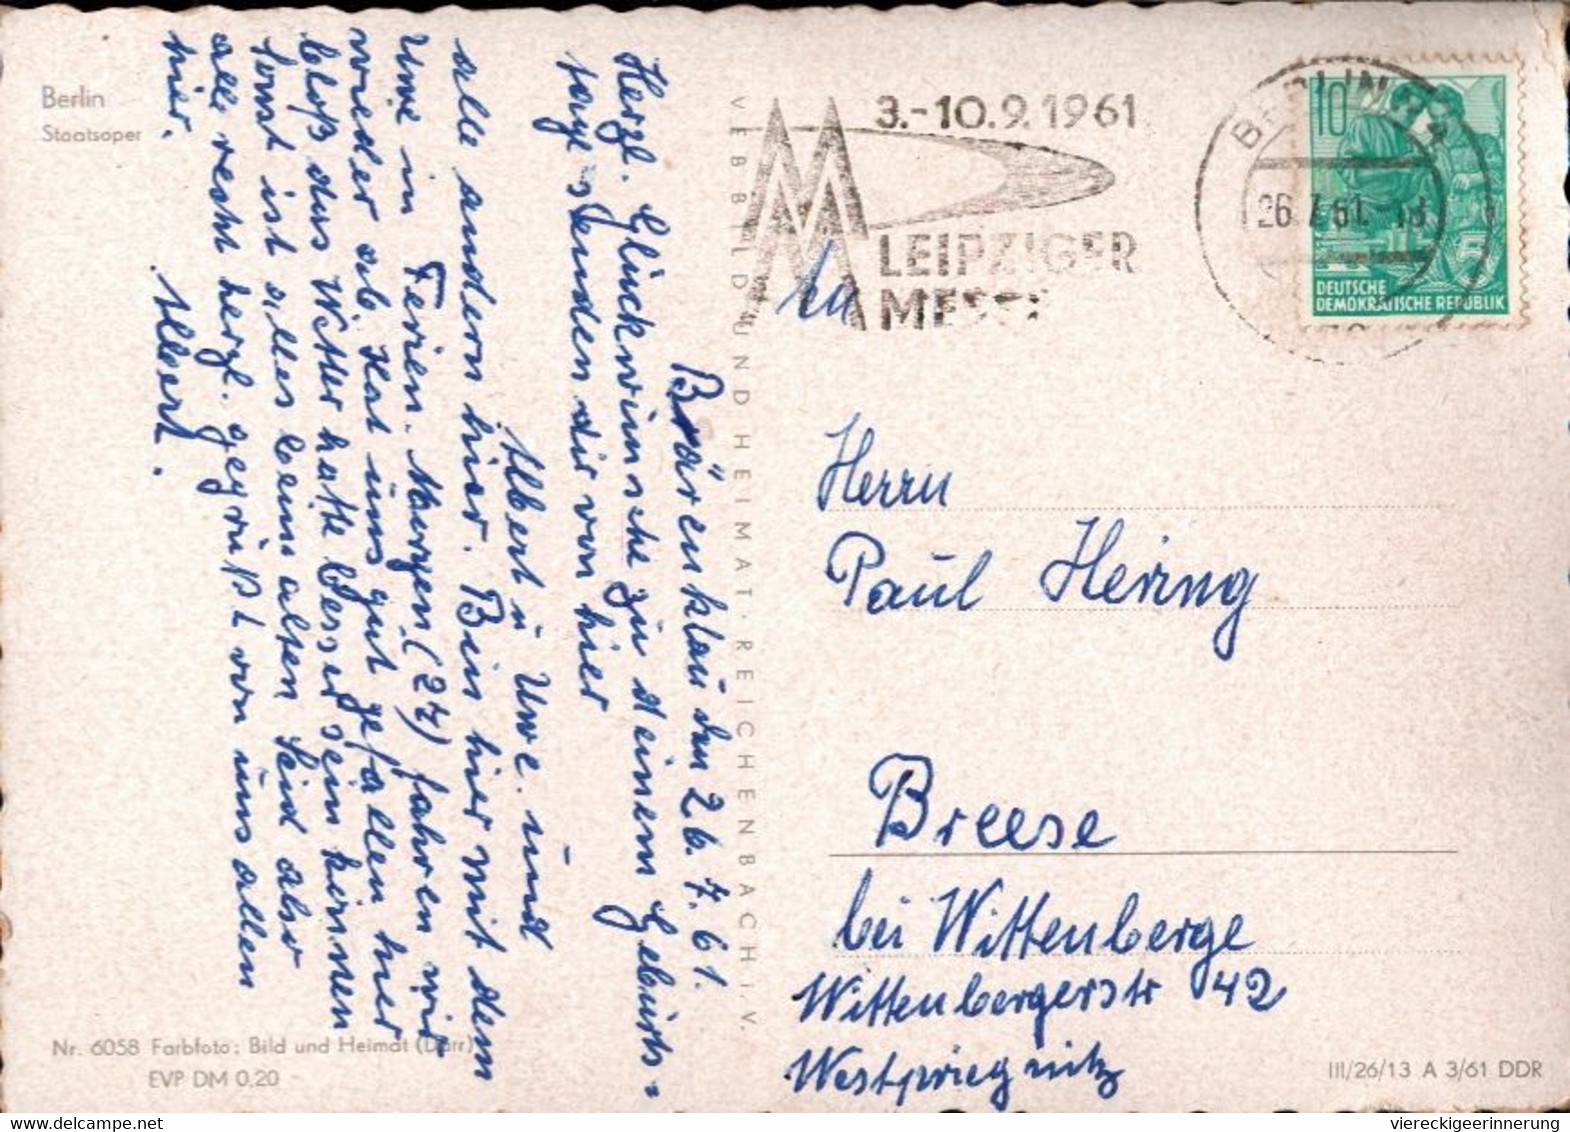 Berlin
Staatsoper
Bärenklau den 26.7.61.
Herzl. Glückwünsche zu deinem Geburts-
tage senden dir von hier
Albert ü Uwe. und
alle andern hier. Bin hier mit dem
Uwe in Ferien. Morgen (27) fahren wir
wieder ab. Hat uns gut gefallen hier
bloß das Wetter hätte besser sein können
sonst ist alles beim alten. Seid also
alle recht herzl. gegrüßt von uns allen
hier.
Albert.
VEB BILD UND HEIMAT · REICHENBACH I. V.
3.-10.9.1961
LEIPZIGER
MESSE
BERLIN
26.7.61.-18
10
5
DEUTSCHE
DEMOKRATISCHE REPUBLIK
Herrn
Paul Hering
Breese
bei Wittenberge
Wittenbergerstr 42
Westprignitz
Nr. 6058 Farbfoto: Bild und Heimat (Darr)
EVP DM 0,20
III/26/13 A 3/61 DDR
hosted by delcampe.net
viereckigeerinnerung